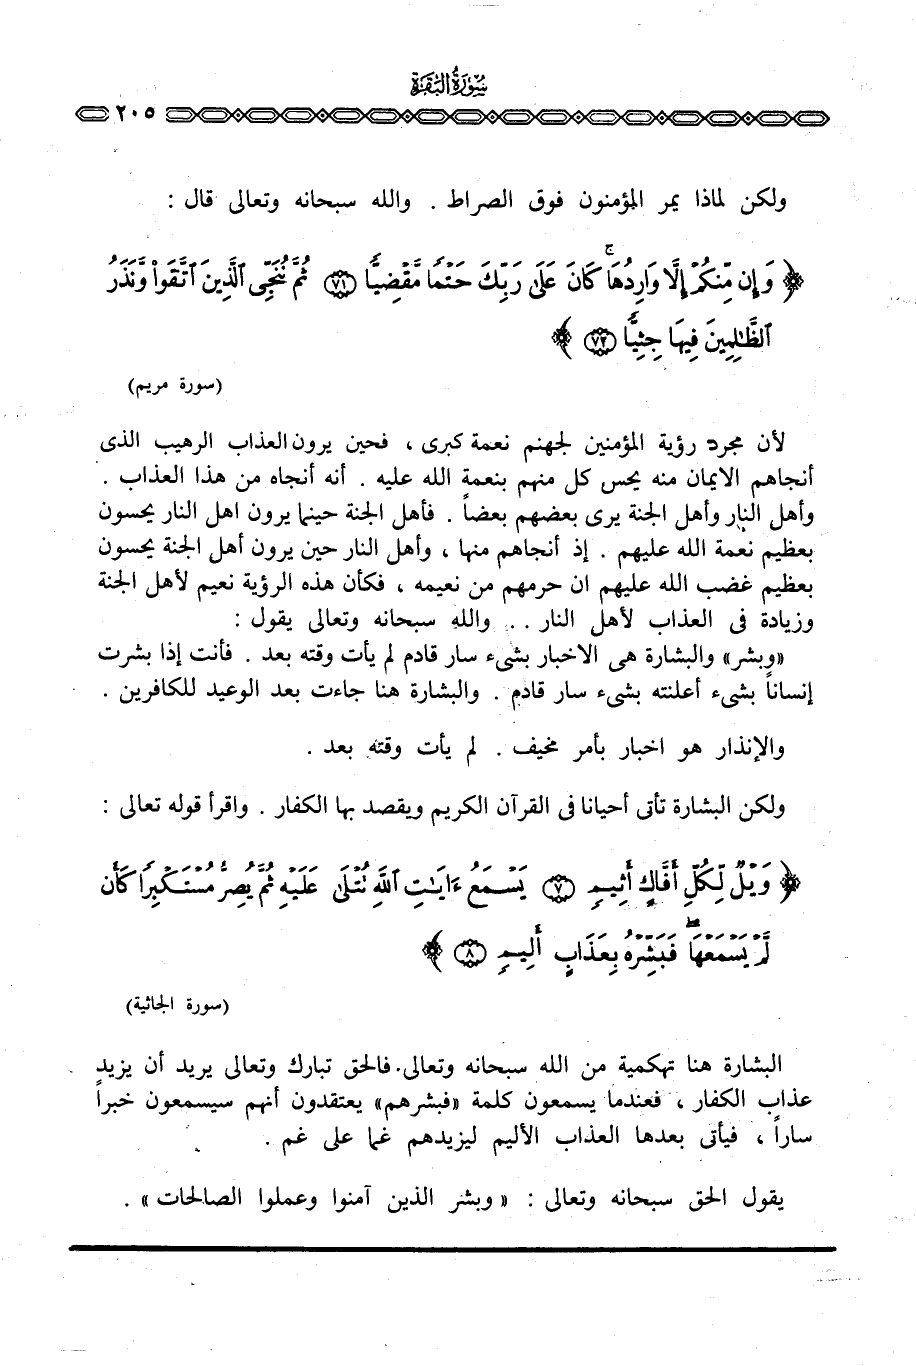 سُورَةُ البَقَرَة
٢٠٥
ولكن لماذا يمر المؤمنون فوق الصراط . والله سبحانه وتعالى قال :
﴿ وَإِن مِّنكُمْ إِلَّا وَارِدُهَا ۚ كَانَ عَلَىٰ رَبِّكَ حَتْمًا مَّقْضِيًّا ﴿٧١﴾ ثُمَّ نُنَجِّى ٱلَّذِينَ ٱتَّقَوا۟ وَّنَذَرُ
ٱلظَّـٰلِمِينَ فِيهَا جِثِيًّا ﴿٧٢﴾ ﴾
(سورة مريم)
لأن مجرد رؤية المؤمنين لجهنم نعمة كبرى ، فحين يرون العذاب الرهيب الذى
أنجاهم الايمان منه يحس كل منهم بنعمة الله عليه . أنه أنجاه من هذا العذاب .
وأهل النار وأهل الجنة يرى بعضهم بعضاً . فأهل الجنة حينما يرون اهل النار يحسون
بعظيم نعمة الله عليهم . إذ أنجاهم منها ، وأهل النار حين يرون أهل الجنة يحسون
بعظيم غضب الله عليهم ان حرمهم من نعيمه ، فكأن هذه الرؤية نعيم لأهل الجنة
وزيادة فى العذاب لأهل النار . . والله سبحانه وتعالى يقول :
«وبشر» والبشارة هى الاخبار بشىء سار قادم لم يأت وقته بعد . فأنت إذا بشرت
إنساناً بشىء أعلنته بشىء سار قادم . والبشارة هنا جاءت بعد الوعيد للكافرين .
والإنذار هو اخبار بأمر مخيف . لم يأت وقته بعد .
ولكن البشارة تأتى أحيانا فى القرآن الكريم ويقصد بها الكفار . واقرأ قوله تعالى :
﴿ وَيْلٌ لِّكُلِّ أَفَّاكٍ أَثِيمٍ ﴿٧﴾ يَسْمَعُ ءَايَـٰتِ ٱللَّهِ تُتْلَىٰ عَلَيْهِ ثُمَّ يُصِرُّ مُسْتَكْبِرًا كَأَن
لَّمْ يَسْمَعْهَا ۖ فَبَشِّرْهُ بِعَذَابٍ أَلِيمٍ ﴿٨﴾ ﴾
(سورة الجاثية)
البشارة هنا تهكمية من الله سبحانه وتعالى. فالحق تبارك وتعالى يريد أن يزيد
عذاب الكفار ، فعندما يسمعون كلمة «فبشرهم» يعتقدون أنهم سيسمعون خبراً
ساراً ، فيأتى بعدها العذاب الأليم ليزيدهم غما على غم .
يقول الحق سبحانه وتعالى : « وبشر الذين آمنوا وعملوا الصالحات » .